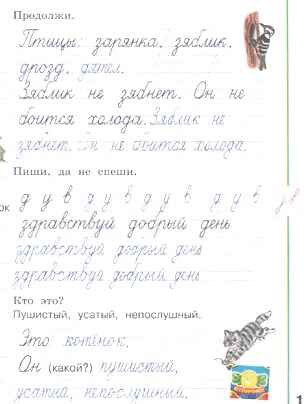 Продолжи.
Птицы: зарянка, зяблик,
дрозд, дятел.
Зяблик не зябнет. Он не
боится холода. Зяблик не
зябнет. Он не боится холода.
Пиши, да не спеши.
д у в д у в д у в д у в
здравствуй добрый день
здравствуй добрый день
здравствуй добрый день
Кто это?
Пушистый, усатый, непослушный.
Это котёнок.
Он (какой?) пушистый,
усатый, непослушный.
1